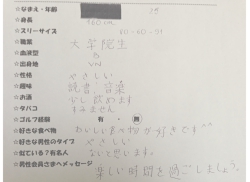 ☆なまえ・年齢 18
☆身長 160cm
☆スリーサイズ 80-60-91
☆職業 大学院生
☆血液型 B
☆出身地 VN
☆性格 やさしい
☆趣味 読書、音楽
☆お酒 少し飲めます
☆タバコ すみません
☆ゴルフ経験 有・無
☆好きな食べ物 おいしい食べ物が好きです^^
☆好きな男性のタイプ やさしい
☆似ている?有名人 ないと思います。
☆男性会員さまへメッセージ
楽しい時間を過ごしましょう。